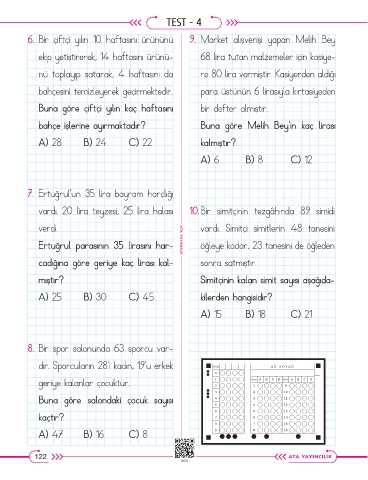 TEST - 4
6. Bir çiftçi yılın 10 haftasını ürününü
ekip yetiştirerek, 14 haftasını ürünü-
nü toplayıp satarak, 4 haftasını da
bahçesini temizleyerek geçirmektedir.
Buna göre çiftçi yılın kaç haftasını
bahçe işlerine ayırmaktadır?
A) 28 B) 24 C) 22
7. Ertuğrul'un 35 lira bayram harçlığı
vardı. 20 lira teyzesi, 25 lira halası
verdi.
Ertuğrul parasının 35 lirasını har-
cadığına göre geriye kaç lirası kal-
mıştır?
A) 25 B) 30 C) 45
8. Bir spor salonunda 63 sporcu var-
dır. Sporcuların 28'i kadın, 19'u erkek
geriye kalanlar çocuktur.
Buna göre salondaki çocuk sayısı
kaçtır?
A) 47 B) 16 C) 8
9. Market alışverişi yapan Melih Bey
68 lira tutan malzemeler için kasiye-
re 80 lira vermiştir. Kasiyerden aldığı
para üstünün 6 lirasıyla kırtasiyeden
bir defter almıştır.
Buna göre Melih Bey'in kaç lirası
kalmıştır?
A) 6 B) 8 C) 12
10. Bir simitçinin tezgâhında 89 simidi
vardı. Simitçi simitlerin 48 tanesini
öğleye kadar, 23 tanesini de öğleden
sonra satmıştır.
Simitçinin kalan simit sayısı aşağıda-
kilerden hangisidir?
A) 15 B) 18 C) 21
AD SOYAD
122
ATA YAYINCILIK